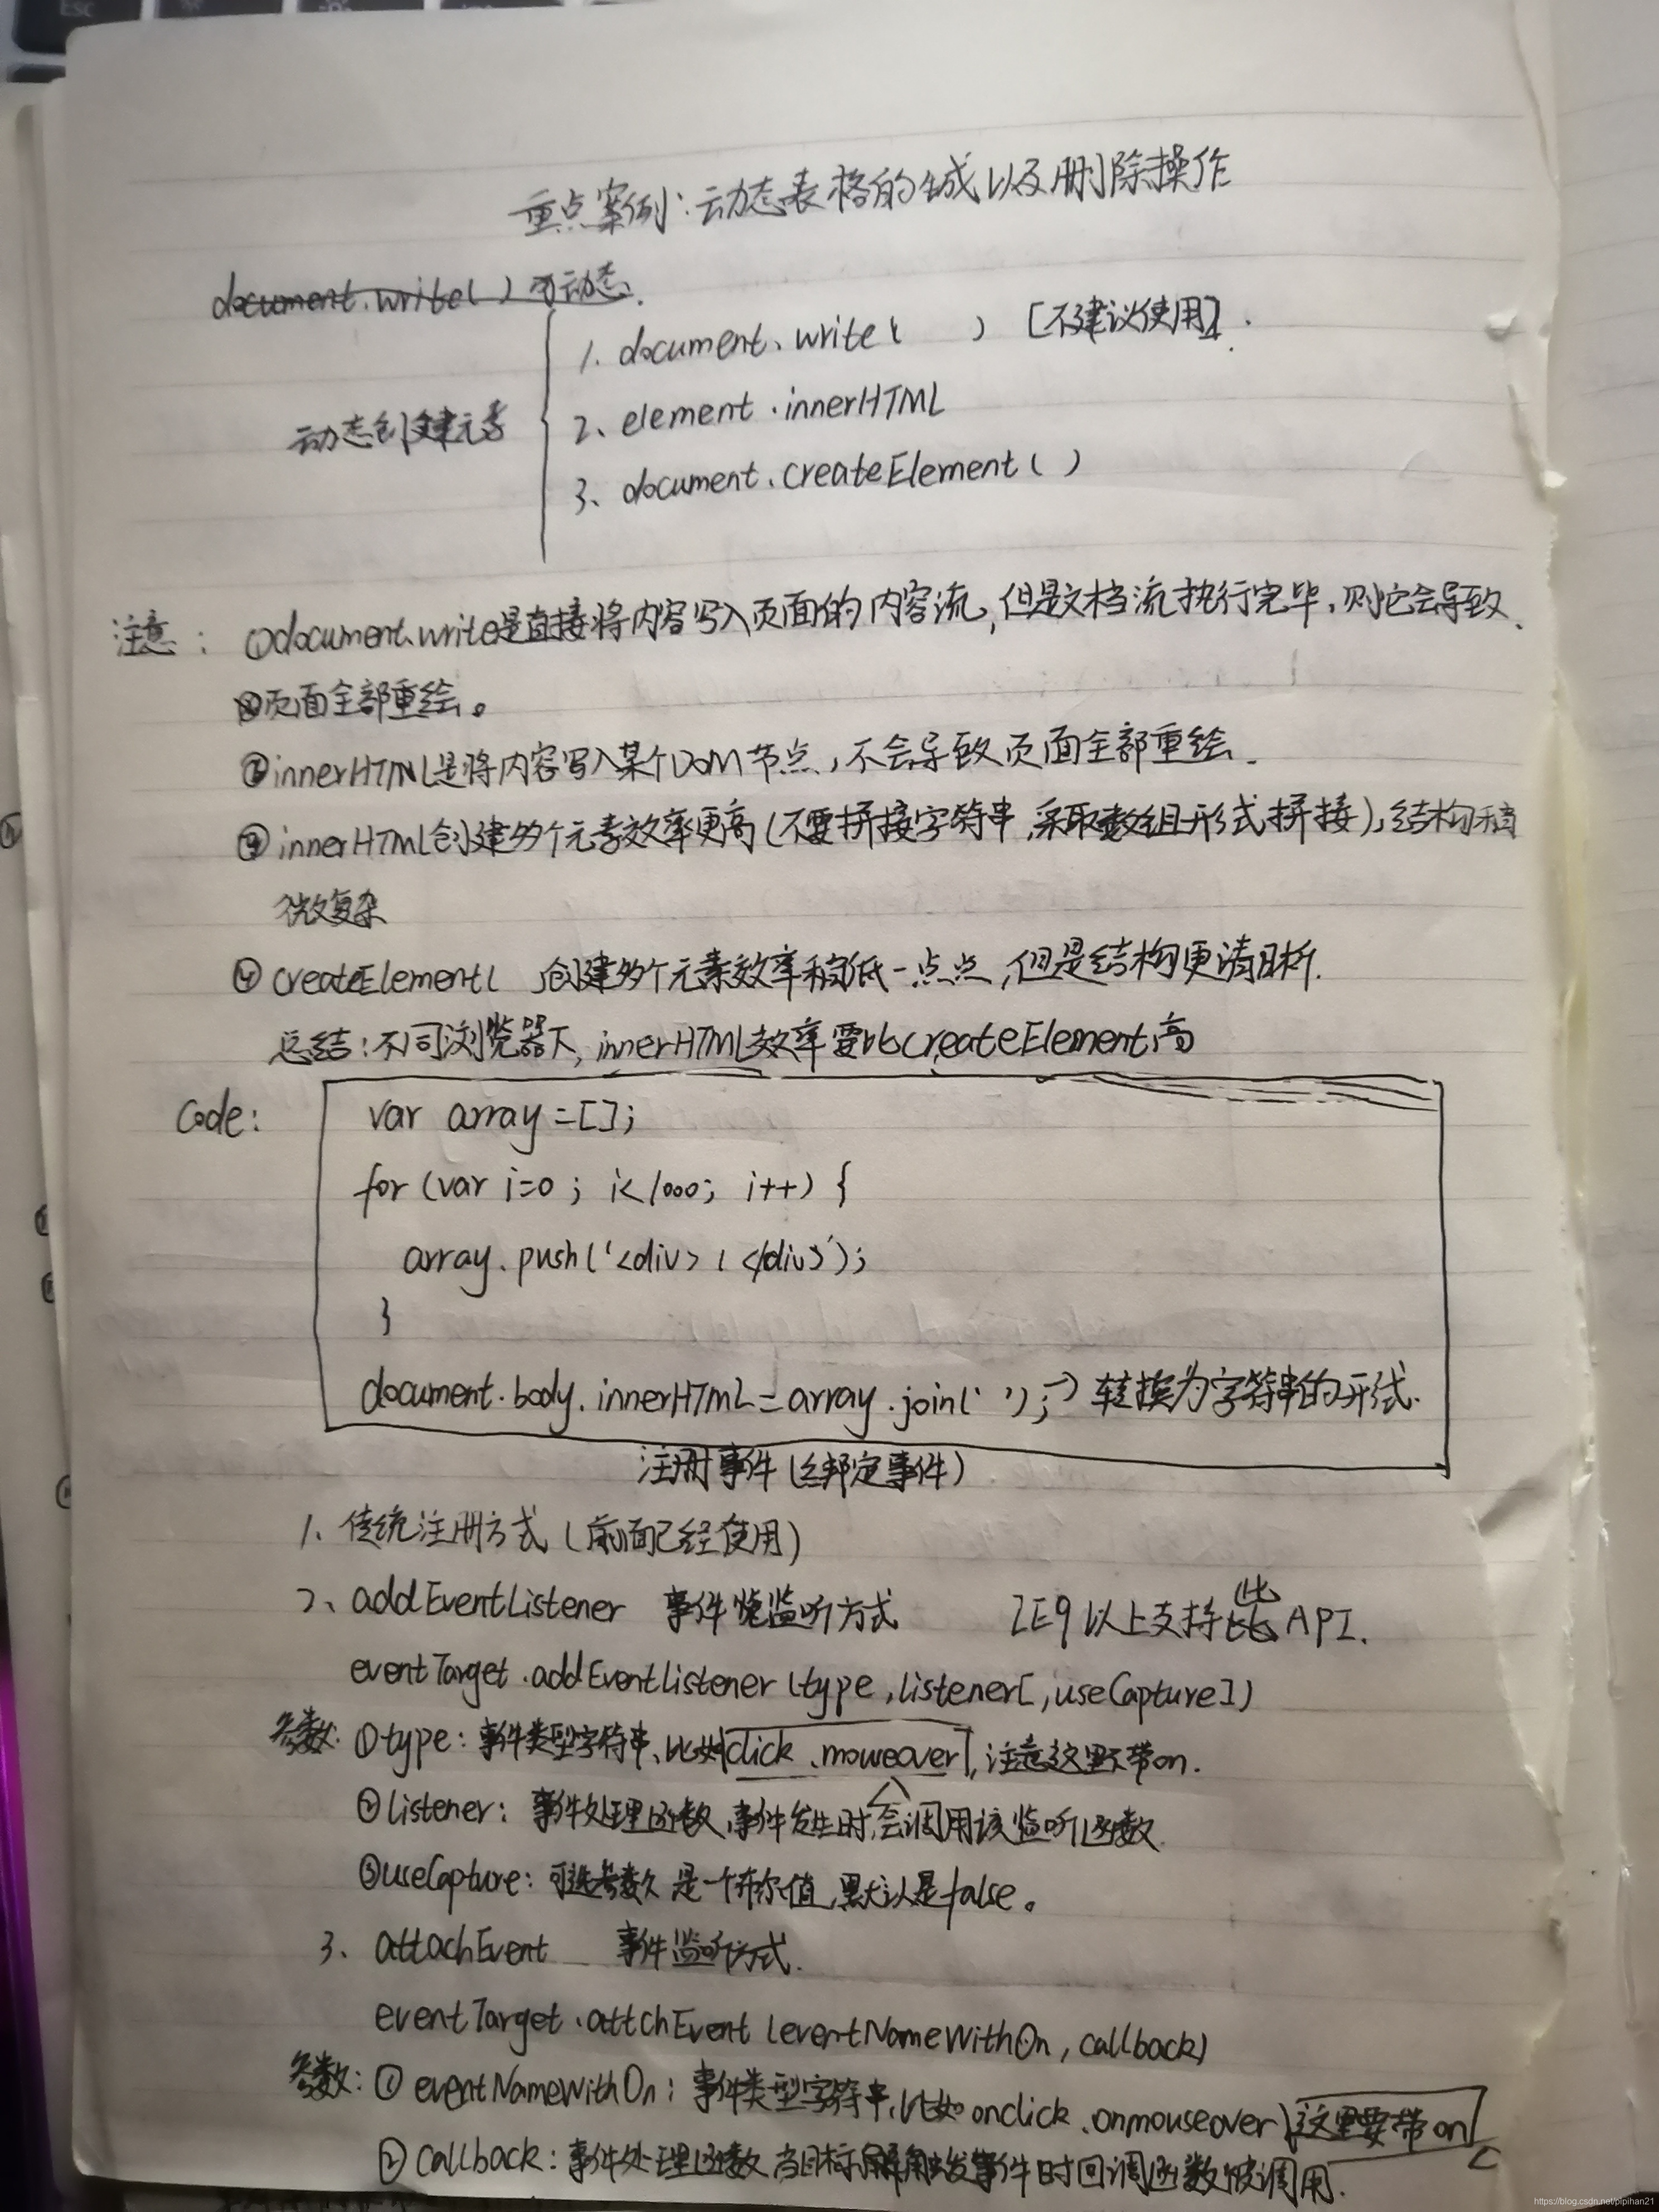 重点案例:动态表格的生成以及删除操作
document.write( ) 动态.
1. document.write( ) [不建议使用].
动态创建元素
2、element.innerHTML
3、document.createElement( )
注意: ①document.write是直接将内容写入页面的内容流,但是文档流执行完毕,则它会导致.
页面全部重绘。
②innerHTML是将内容写入某个DOM节点,不会导致页面全部重绘.
③innerHTML创建多个元素效率更高(不要拼接字符串,采取数组形式拼接),结构稍
微复杂
④createElement( )创建多个元素效率稍低一点点,但是结构更清晰.
总结:不同浏览器下,innerHTML效率要比createElement高
Code:
var array=[];
for (var i=0; i<1000; i++) {
array.push('<div>1</div>');
}
document.body.innerHTML=array.join('');→转换为字符串的形式.
注册事件(绑定事件)
1、传统注册方式(前面已经使用)
2、addEventListener 事件监听方式 IE9以上支持此API.
eventTarget.addEventListener(type,listener[,useCapture])
参数: ①type:事件类型字符串、比如click、moweover,注意这里不带on.
②listener: 事件处理函数,事件发生时,会调用该监听函数.
③useCapture: 可选参数 是一个布尔值,默认是false。
3、attachEvent 事件监听方式.
eventTarget.attchEvent(eventNameWithOn, callback)
参数: ① eventNameWithOn: 事件类型字符串,比如onclick、onmouseover,这里要带on
② callback:事件处理函数 当目标触发事件时回调函数被调用.
https://blog.csdn.net/pipihan21